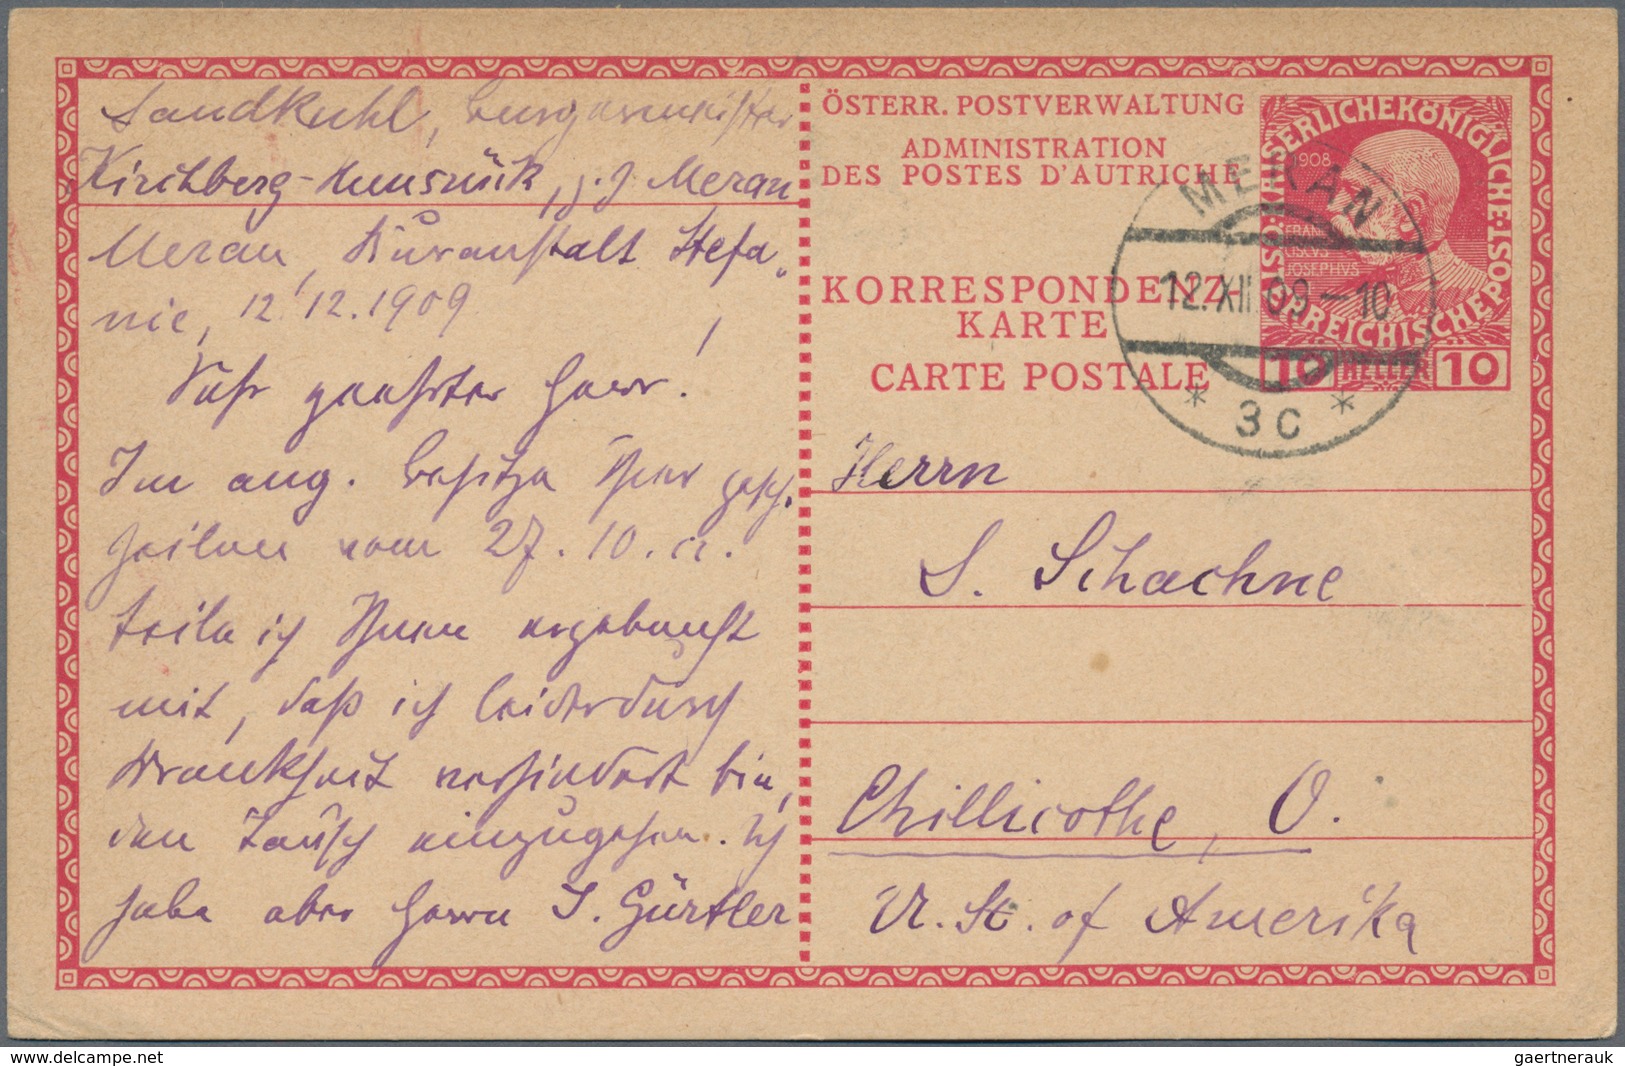 Sandkuhl, Burgermeister
Kirchberg-Hunsrück, z. Z. Meran
Meran, Kuranstalt Stefa-
nie, 12/12. 1909
Sehr geehrter Herr!
Im ang. Besitze Ihrer gesch.
Zeilen vom 27. 10. cr.
teile ich Ihnen ergebenst
mit, daß ich leider durch
Krankheit verhindert bin,
den Tausch einzugehen. Ich
habe aber Herrn J. Gürtler
ÖSTERR. POSTVERWALTUNG
ADMINISTRATION
DES POSTES D'AUTRICHE
KORRESPONDENZ-
KARTE
CARTE POSTALE
KAISERLICHEKÖNIGLICHE
ÖSTERREICHISCHEPOST
1908
FRAN
CISCVS
JOSEPHVS
10 HELLER 10
MERAN
12.XII.09-10
* 3c *
Herrn
S. Schachne
Chillicothe, O.
U. St. of Amerika
delcampe.net
gaertnerauk